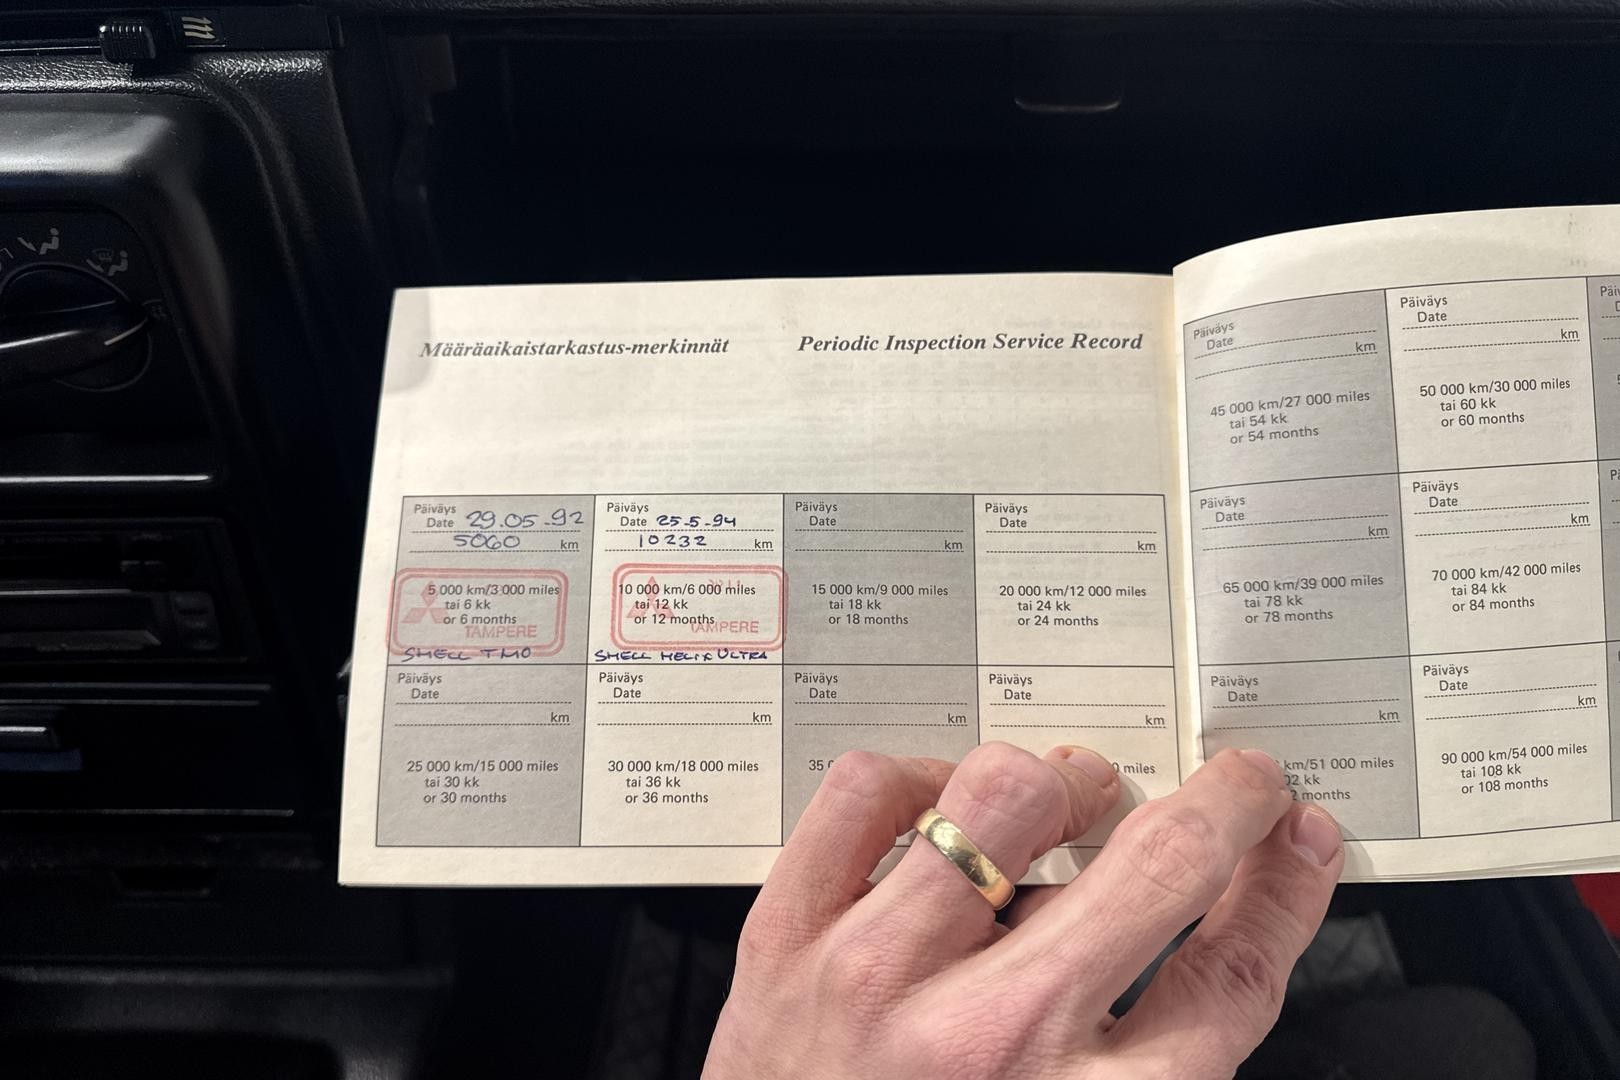 Määräaikaistarkastus-merkinnät
Periodic Inspection Service Record
Päiväys
Date 29.05-92
5060 km
5 000 km/3 000 miles
tai 6 kk
or 6 months
TAMPERE
SHELL TMO
Päiväys
Date 25-5-94
10232 km
10 000 km/6 000 miles
tai 12 kk
or 12 months
TAMPERE
SHELL HELIX ULTRA
Päiväys
Date
km
15 000 km/9 000 miles
tai 18 kk
or 18 months
Päiväys
Date
km
20 000 km/12 000 miles
tai 24 kk
or 24 months
Päiväys
Date
km
25 000 km/15 000 miles
tai 30 kk
or 30 months
Päiväys
Date
km
30 000 km/18 000 miles
tai 36 kk
or 36 months
Päiväys
Date
km
35
Päiväys
Date
km
miles
Päiväys
Date
km
45 000 km/27 000 miles
tai 54 kk
or 54 months
Päiväys
Date
km
50 000 km/30 000 miles
tai 60 kk
or 60 months
Päiväys
Date
km
65 000 km/39 000 miles
tai 78 kk
or 78 months
Päiväys
Date
km
70 000 km/42 000 miles
tai 84 kk
or 84 months
Päiväys
Date
km
km/51 000 miles
kk
months
Päiväys
Date
km
90 000 km/54 000 miles
tai 108 kk
or 108 months